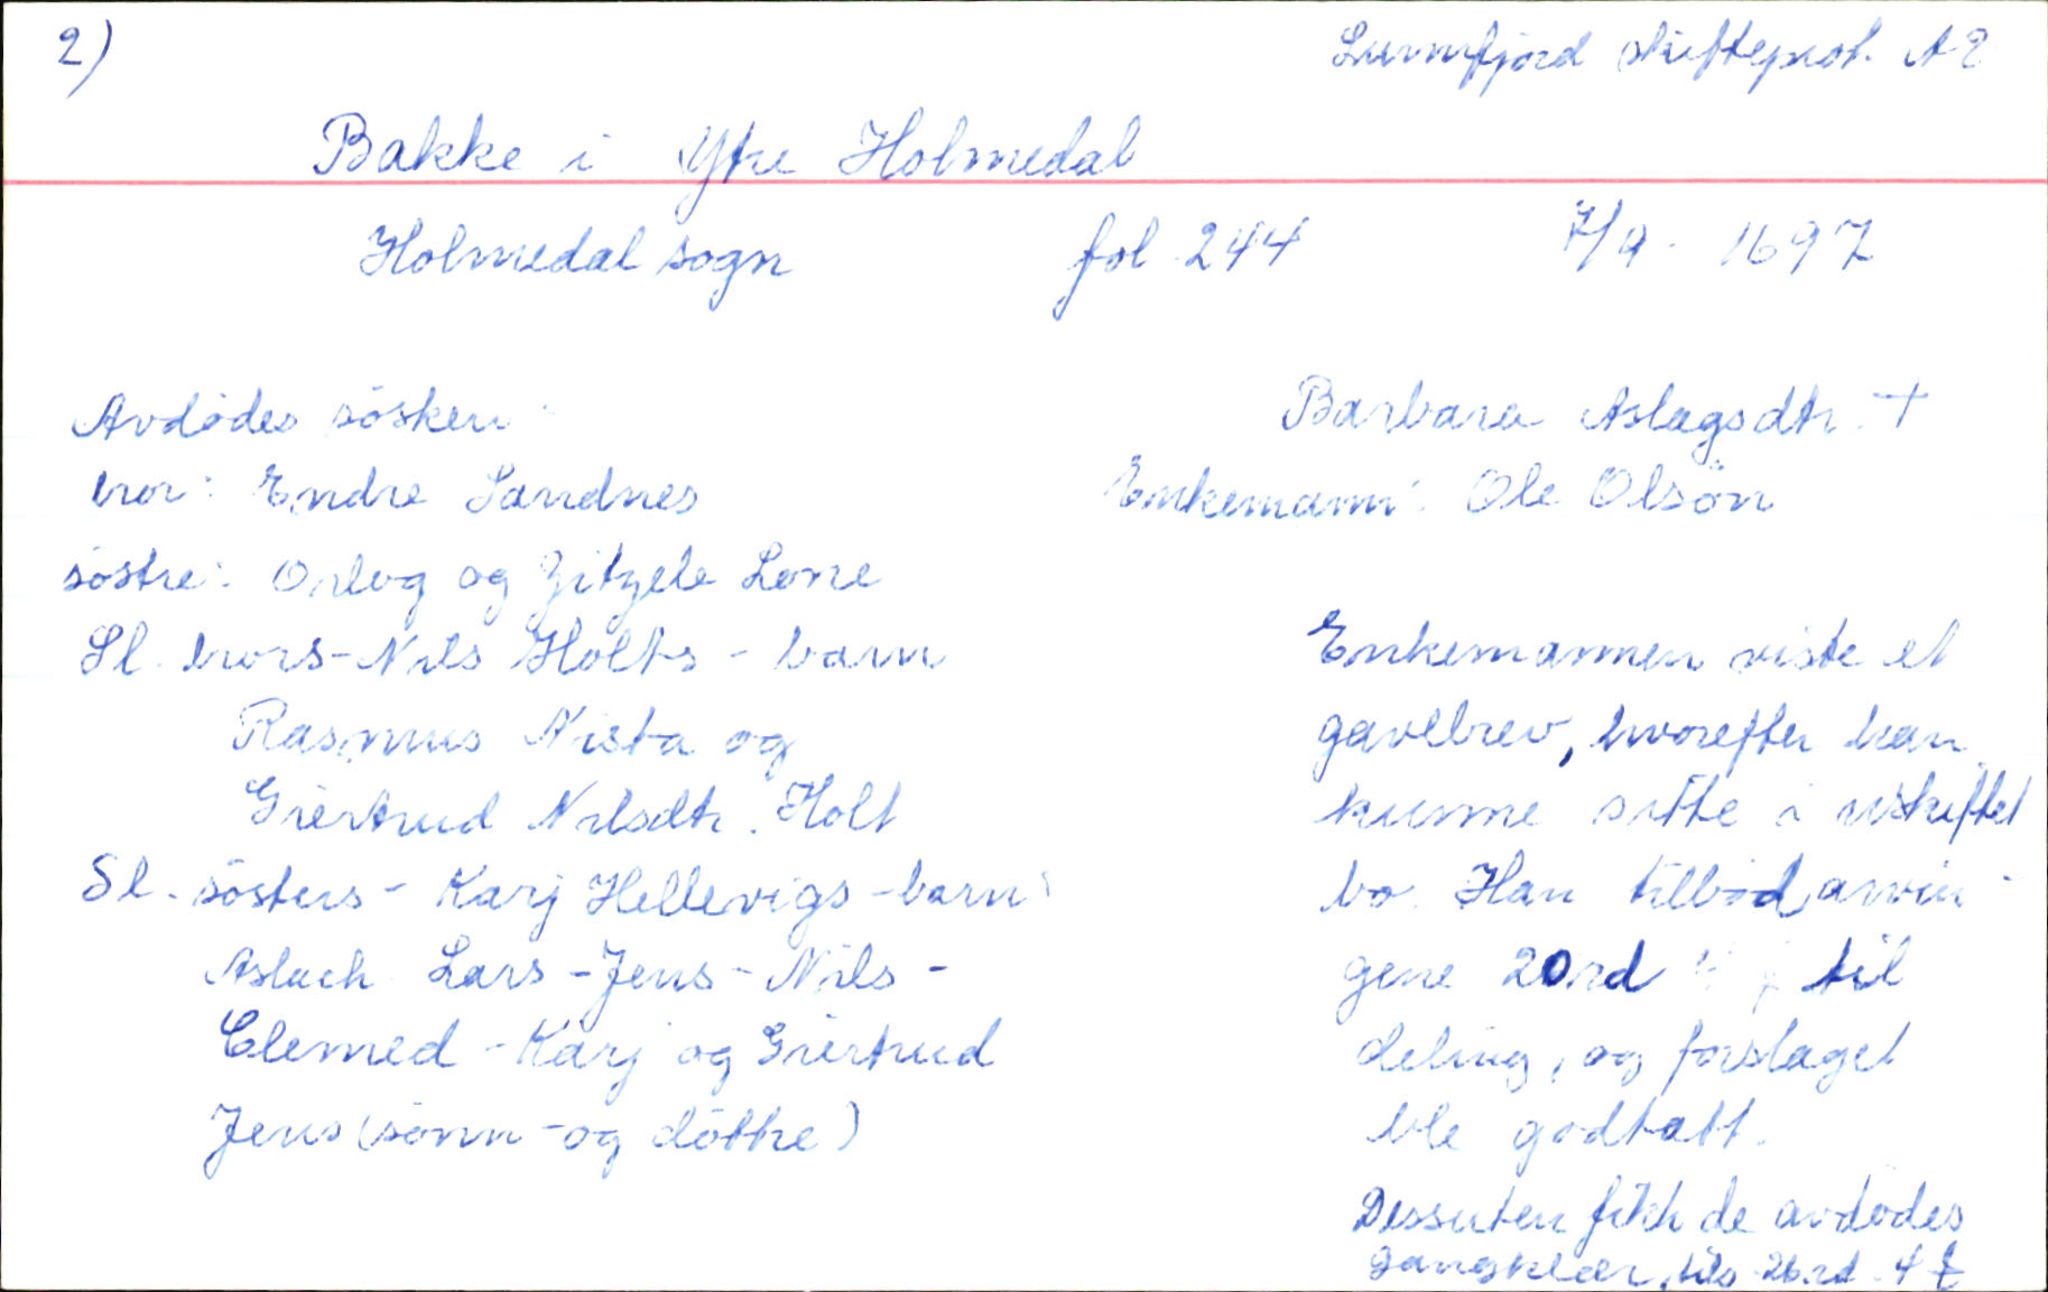 2)
Sunnfjord skifteprot. A 2
Bakke i Ytre Holmedal
Holmedal sogn fol 244 7/9 - 1697
Avdödes sösken:
bror: Endre Sandnes
söstre: Orlog og Zitzele Lone
Sl. brors - Nils Holts - barn
Rasmus Nista og
Giertrud Nilsdtr. Holt
Sl. sösters - Karj Hellevigs - barn:
Aslach Lars - Jens - Nils -
Clemed - Karj og Giertrud
Jens (sönn - og döttre)
Barbara Aslagsdtr. +
Enkemann: Ole Olsön
Enkemannen viste et
gavebrev, hvorefter han
kunne sitte i uskiftet
bo. Han tilbød arvin-
gene 20 rd til
deling, og forslaget
ble godtatt.
Dessuten fikk de avdødes
gangklær, tils. 26 rd. 4